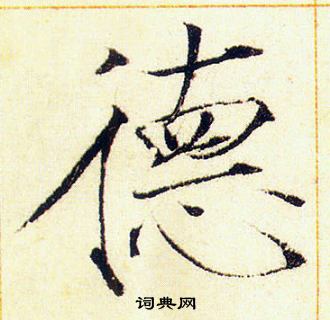 德
词典网